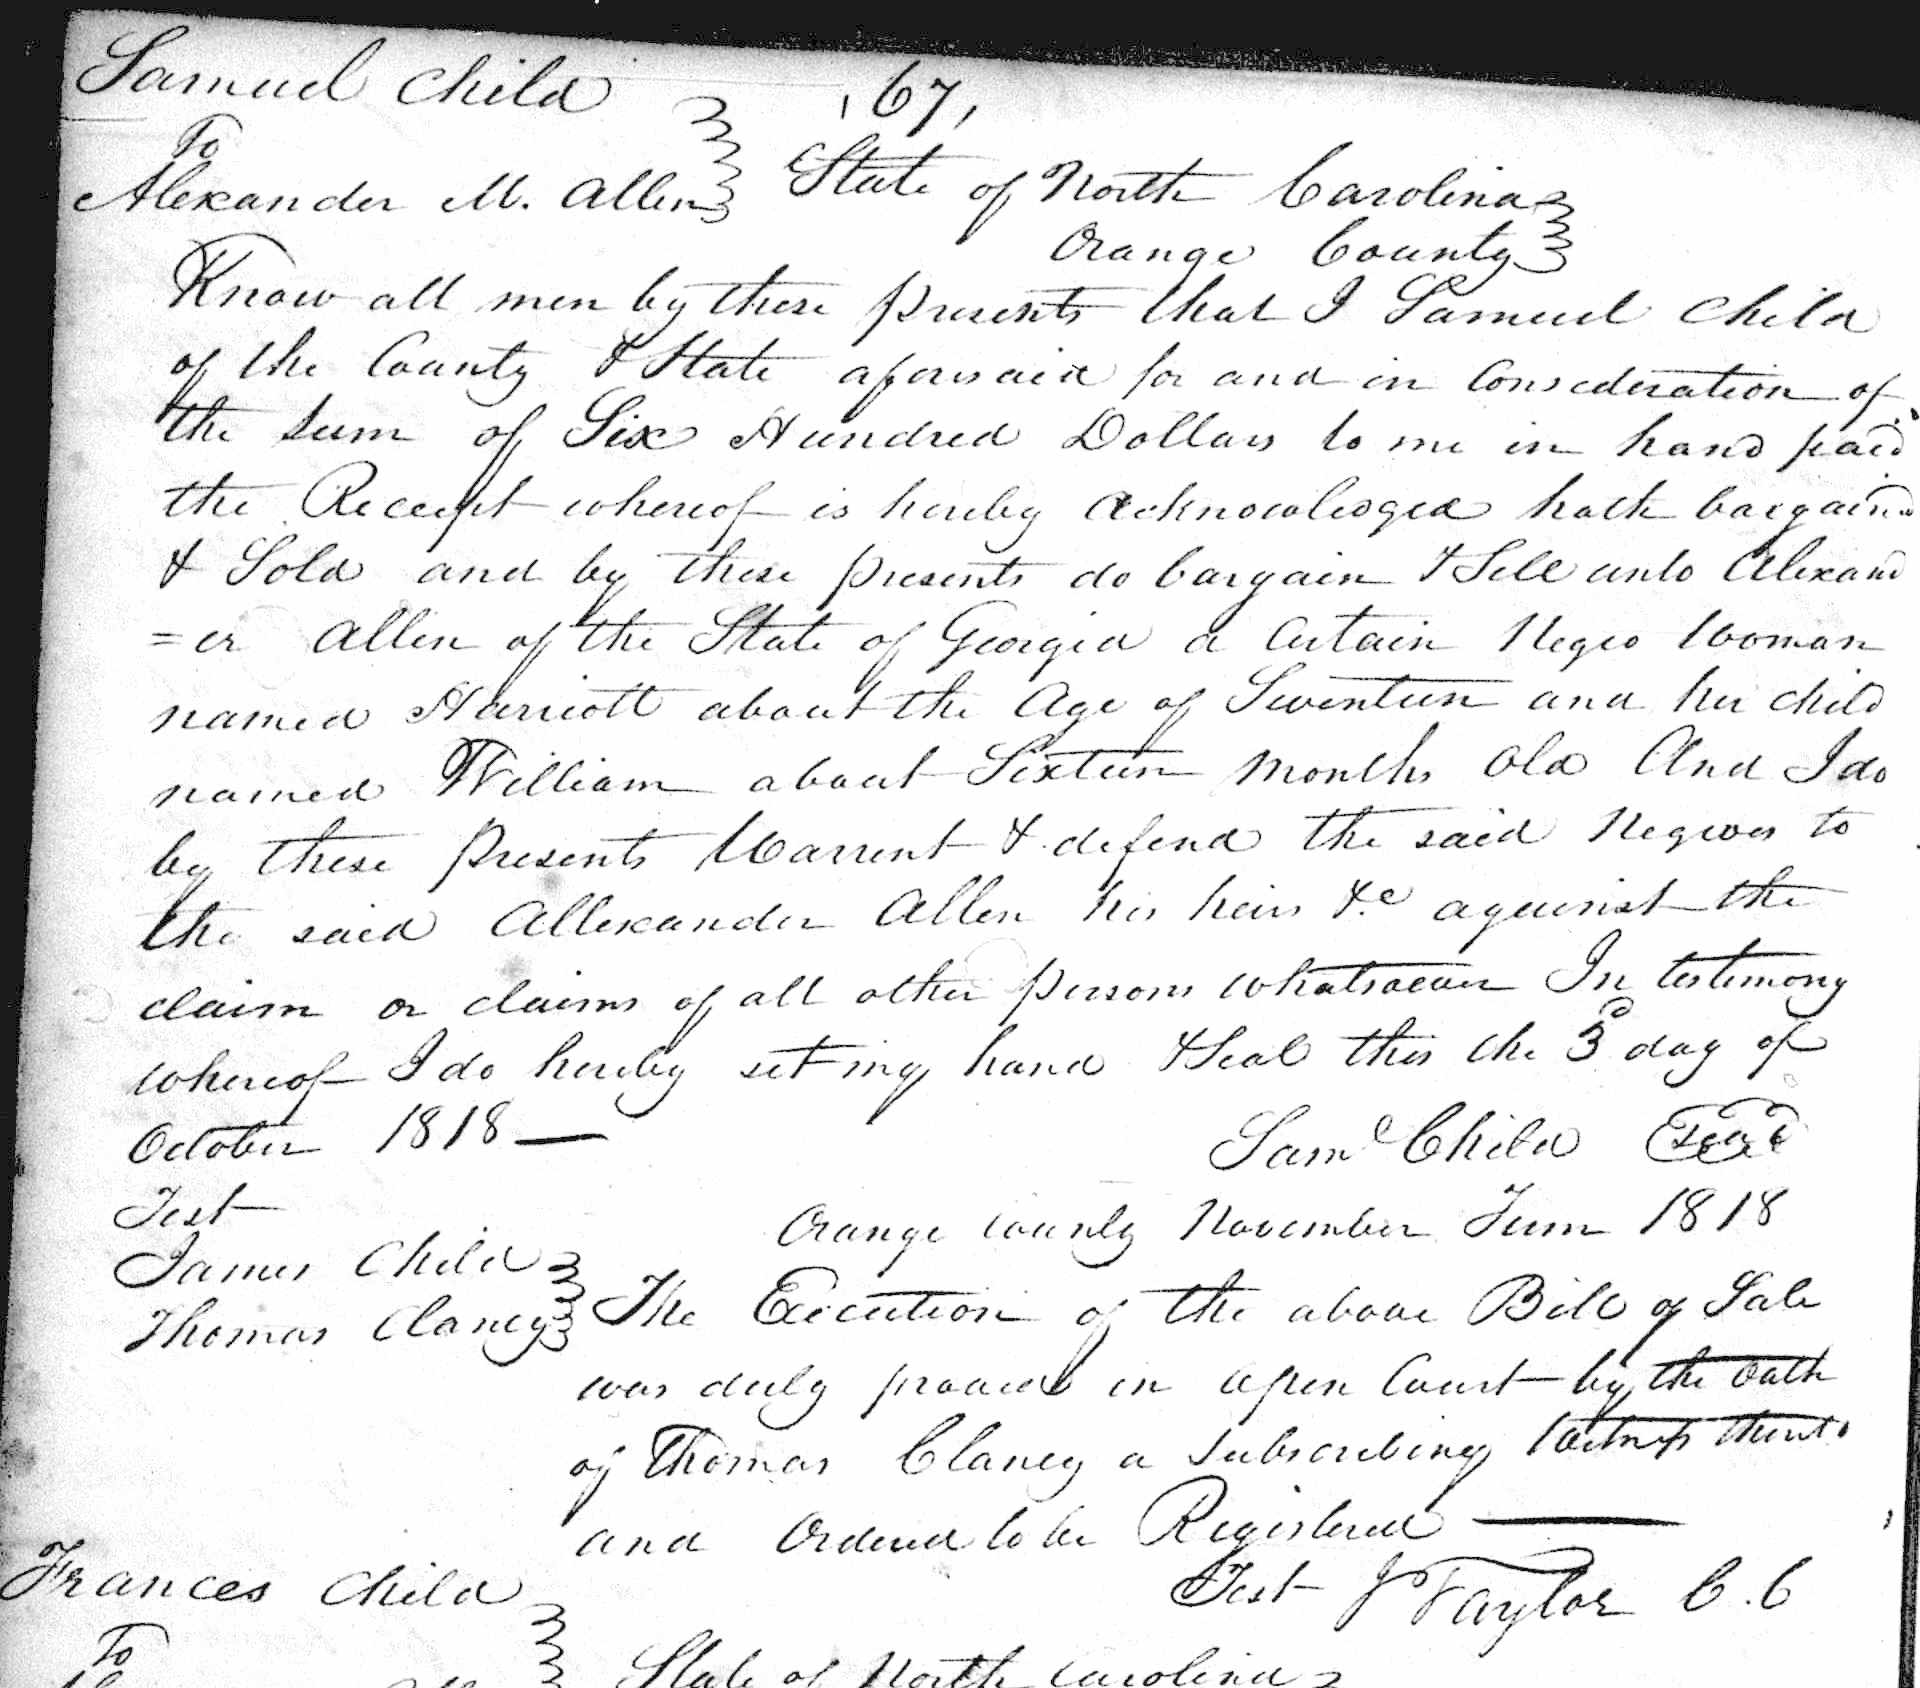 Samuel Child
,67,
To
Alexander M. Allen
State of North Carolina
Orange County
Know all men by these presents that I Samuel Child
of the County & State aforesaid for and in Consideration of
the sum of Six Hundred Dollars to me in hand paid
the Receipt whereof is hereby acknowledged hath bargain
& Sold and by these presents do bargain & Sell unto Alexand
=er Allen of the State of Georgia a Certain Negro Woman
named Harriott about the Age of Seventeen and her child
named William about Sixteen Months Old And I do
by these Presents Warrent & defend the said Negroes to
the said Allexander Allen his heirs &c against the
claim or claims of all other persons whatsoever In testimony
whereof I do hereby set my hand & Seal this the 3d day of
October 1818 —
Saml Child Seal
Test
Orange County November Term 1818
James Child
Thomas Clancy
The Execution of the above Bill of Sale
was duly proved in open Court by the Oath
of Thomas Clancy a subscribing Witness thereto
and Ordered to be Registered —
Test J Taylor C.C
Frances Child
To
State of North Carolina